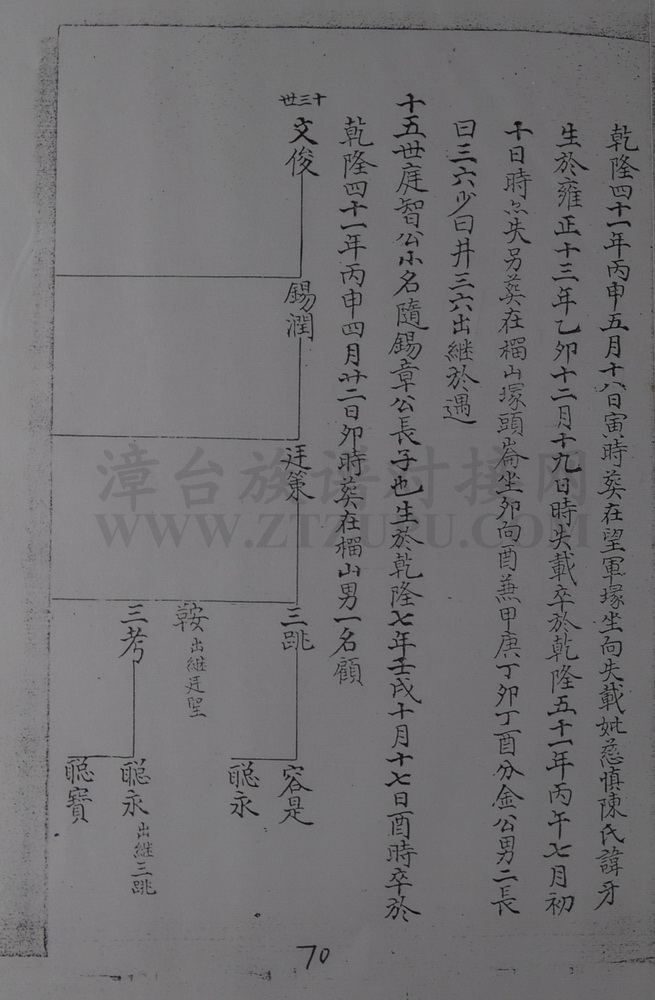 乾隆四十一年丙申五月十八日寅時葬在望軍塚坐向失載妣慈慎陳氏諱牙
生於雍正十三年乙卯十二月十九日時失載卒於乾隆五十一年丙午七月初
十日時亦失另葬在橊山塚頭崙坐卯向酉兼甲庚丁卯丁酉分金公男二長
曰三六少曰井三六出繼於遇
十五世庭智公小名隨錫章公長子也生於乾隆七年壬戌十月十七日酉時卒於
乾隆四十一年丙申四月廿二日卯時葬在橊山男一名顧
十三世
文俊
錫潤
廷策
三跳
鞍 出繼廷聖
三考
容是
聪永
聪永 出繼三跳
聪寶
漳台族谱对接网
WWW.ZTZUPU.COM
70